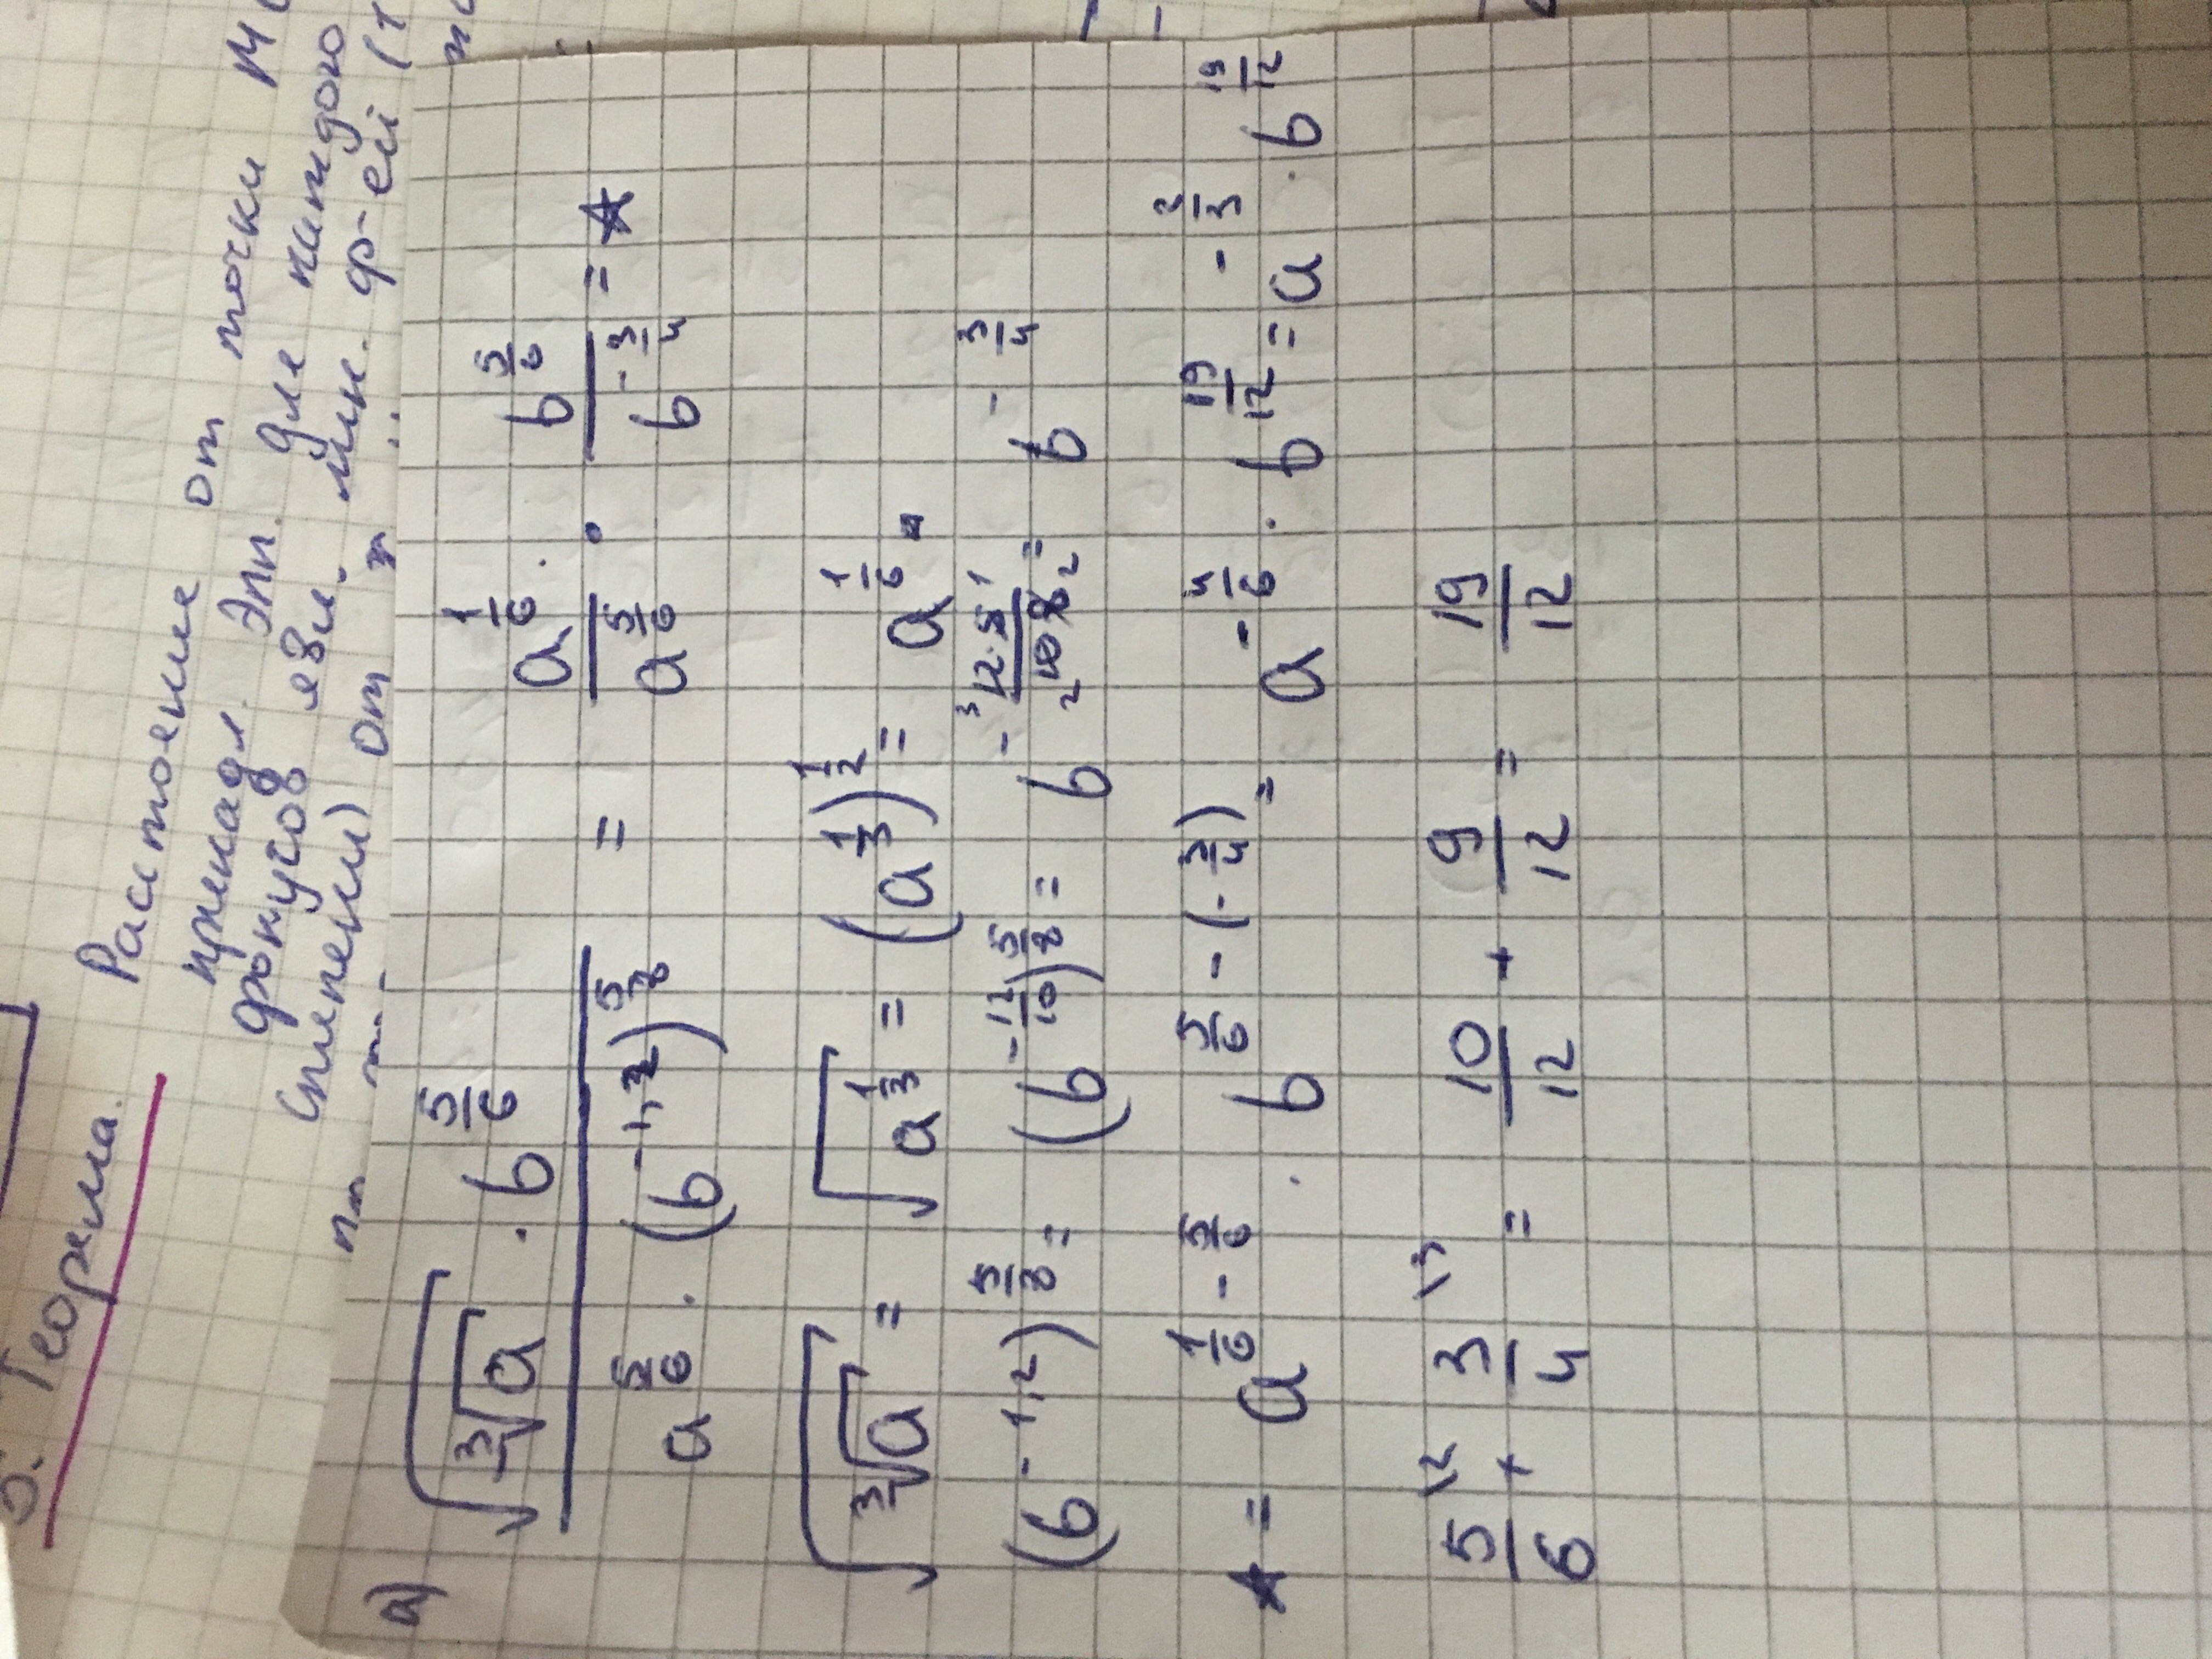 5. Теорема.
Расстояние от точки
принадл. Эл. для каждого
фокусов явл. лин. ф-ей
степени) от
а)
√(∛a) · b^(5/6) / (a^(5/6) · (b^(-1,2))^(5/8)) = a^(1/6)/a^(5/6) · b^(5/6)/b^(-3/4) = ★
√(∛a) = √(a^(1/3)) = (a^(1/3))^(1/2) = a^(1/6)
(b^(-1,2))^(5/8) = (b^(-12/10))^(5/8) = b^(-(12·5)/(10·8)) = b^(-3/4)
★ = a^(1/6 - 5/6) · b^(5/6 - (-3/4)) = a^(-4/6) · b^(19/12) = a^(-2/3) · b^(19/12)
5/6 + 3/4 = 10/12 + 9/12 = 19/12